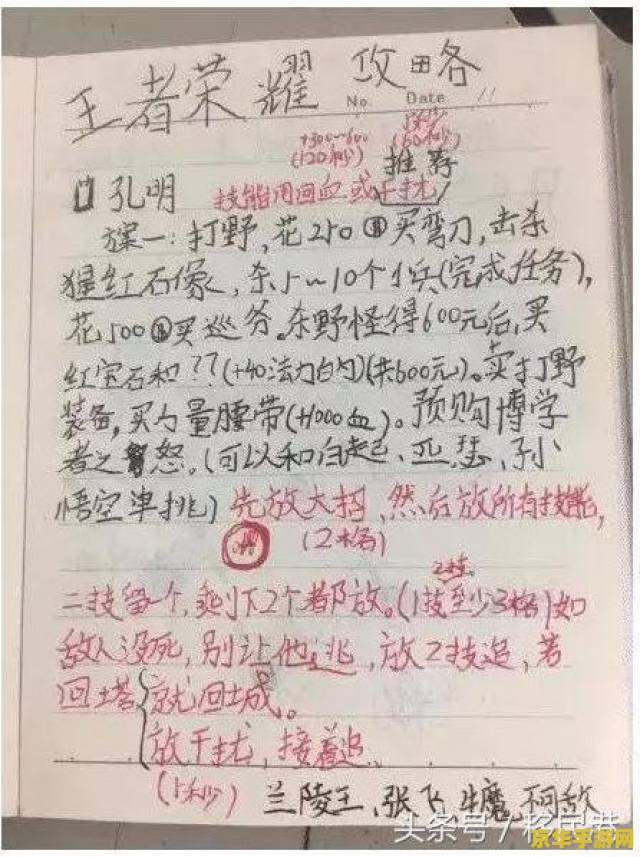 王者荣耀 攻略
No. Date 11
+300~600
(120秒)
5秒
(60秒)
推荐
孔明 技能用回血或干扰
方案一:打野,花250买弯刀,击杀
猩红石像,杀5~10个小兵(完成任务),
花500买巡夯。杀野怪得600元后,买
红宝石和??(+40法力白勺)(共600元)。卖打野
装备,买力量腰带(+1000血)。预购博学
者之怒。(可以和白起、亚瑟、孙
悟空单挑)先放大招,然后放所有技能,
(2格)
二技留一个,剩下2个都放。(1技至少3格)如
敌人没死,别让他逃,放2技追,若
回塔 就回城。
放干扰,接着追
(5秒) 兰陵王、张飞、牛魔,不同敌
头条号/
京华手游网